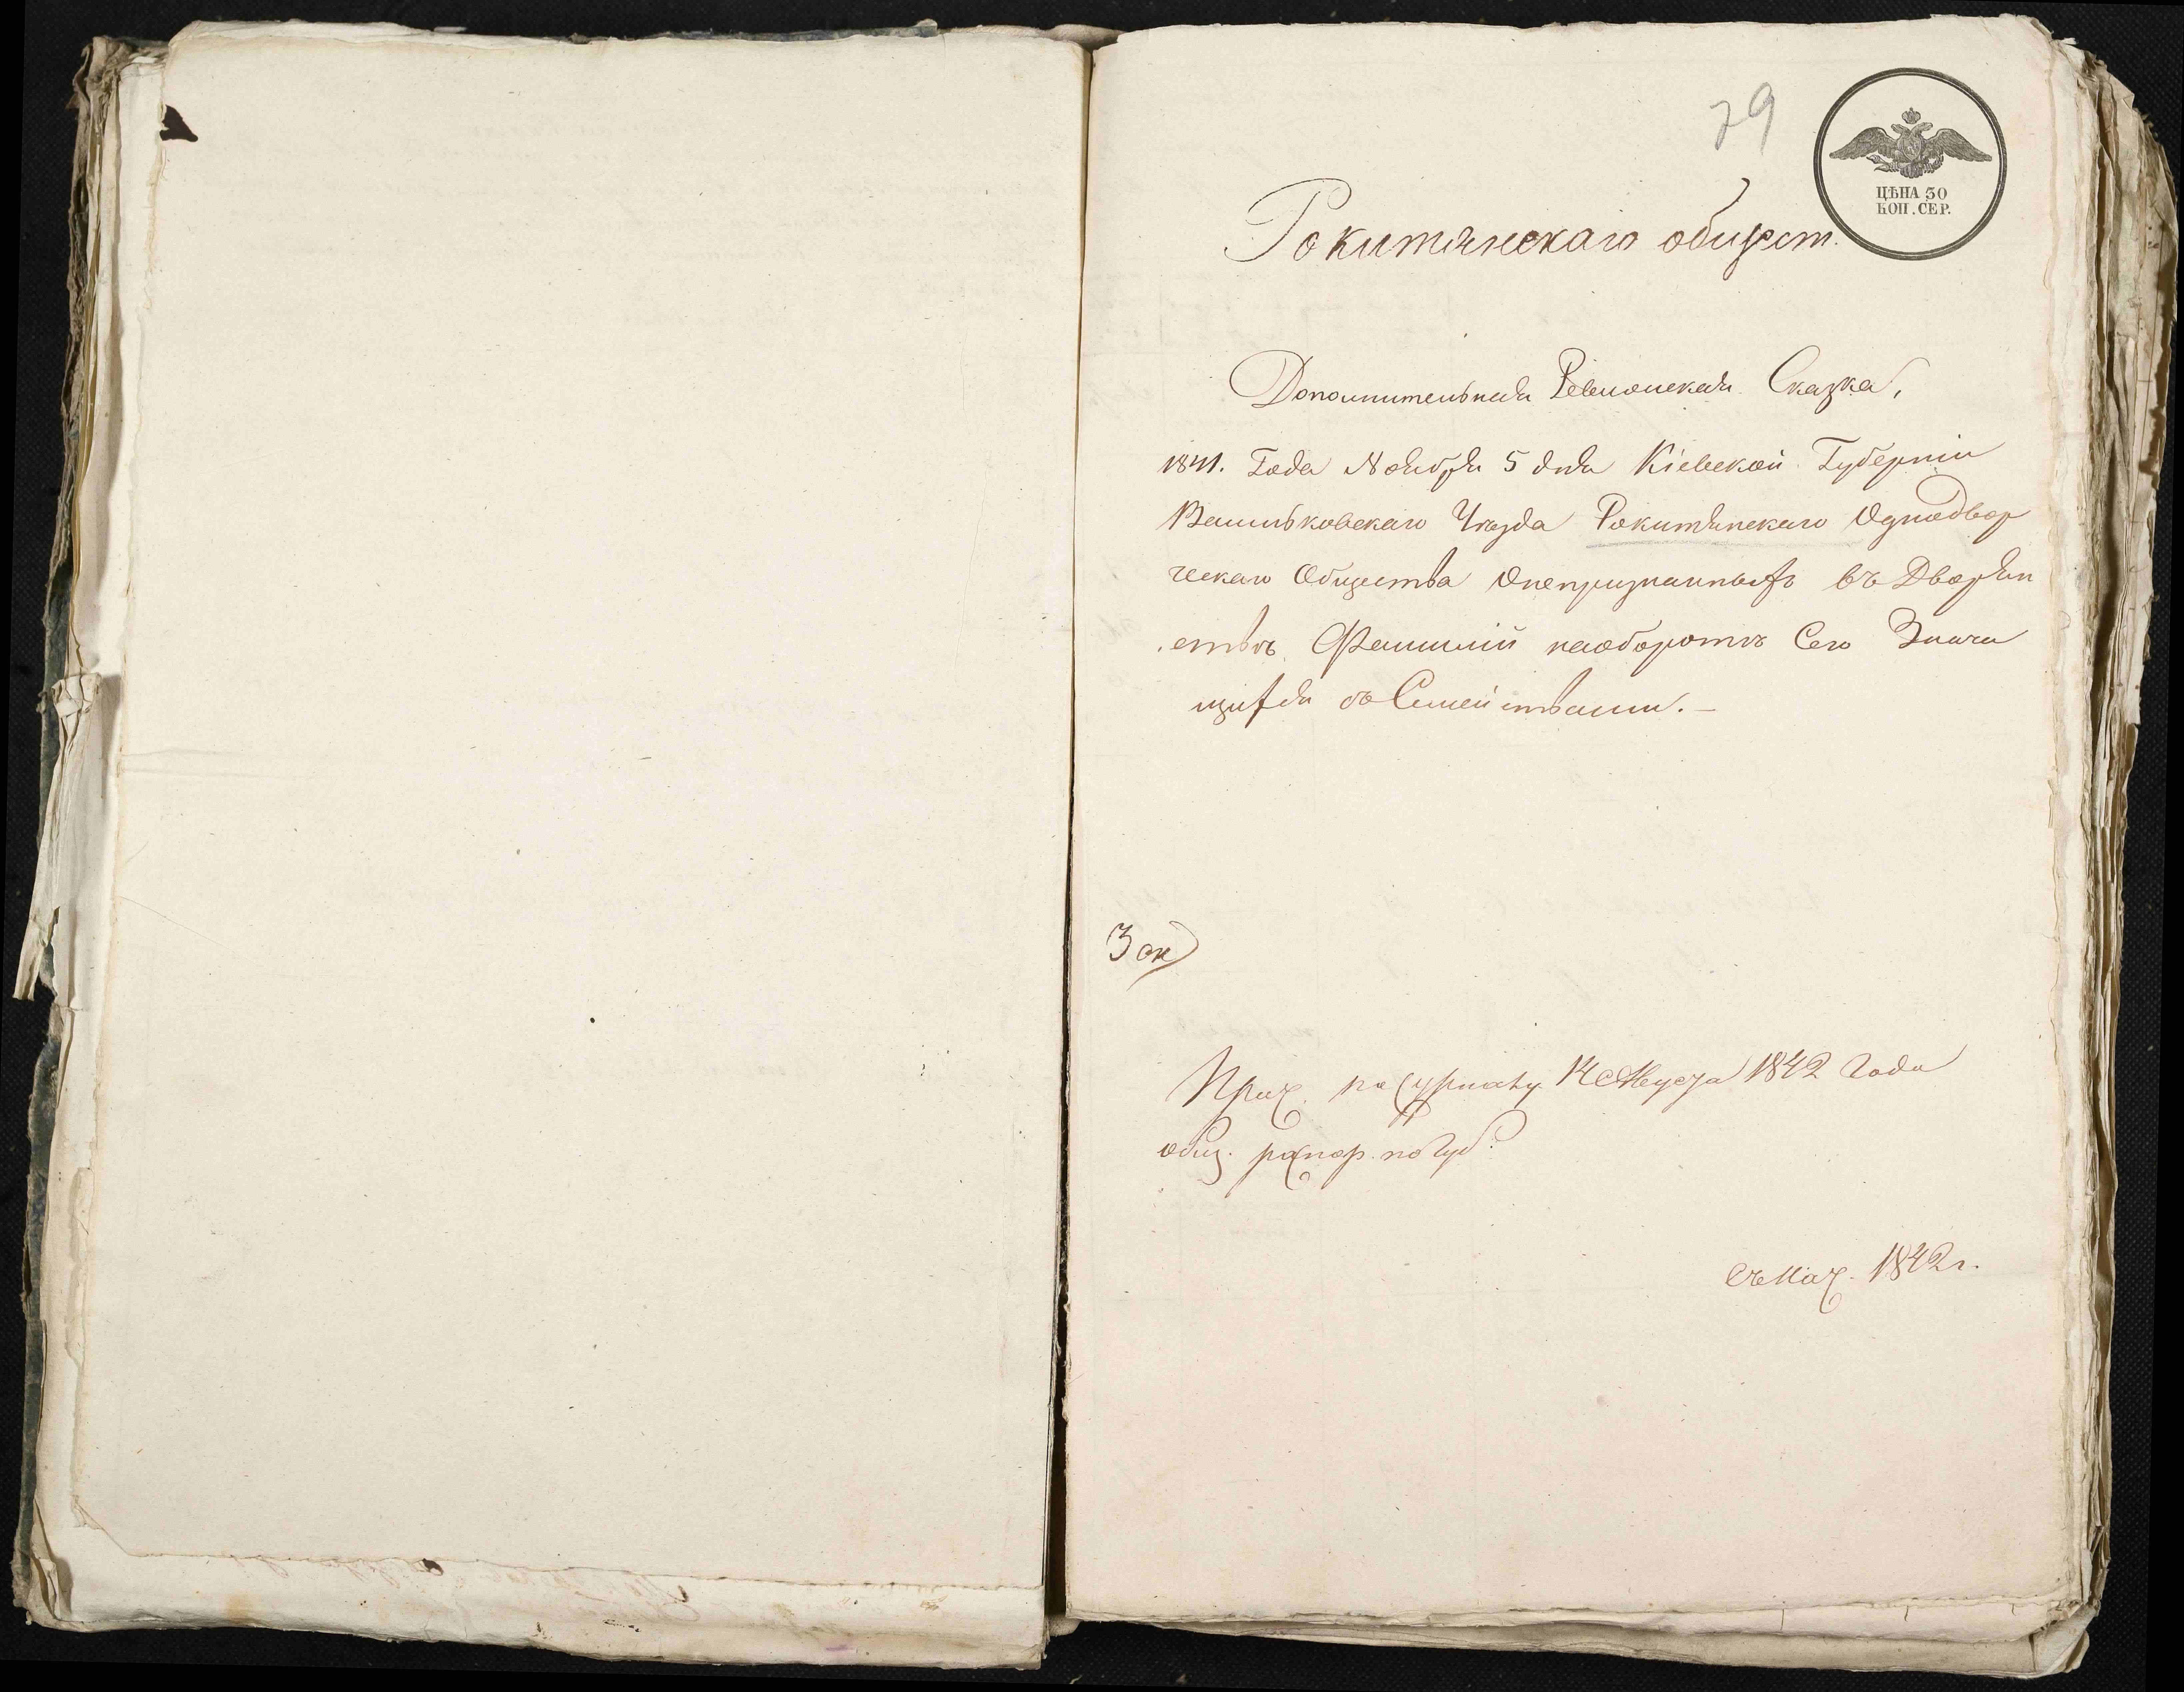 79
ЦѢНА 30
КОП. СЕР.
Рокитянскаго общест.
Дополнительная Ревизская Сказка,
1841. Года Ноября 5 дня Кіевской Губерніи
Васильковскаго Уѣзда Рокитянскаго Однодвор
ческаго Общества Онепризнанныхъ въ Дворян
ствѣ Фамилій наоборотѣ Сего Значу
щихся съ Семействами. —
по журналу 14 Августа 1842 Года
общ. по губ.
1842 г.